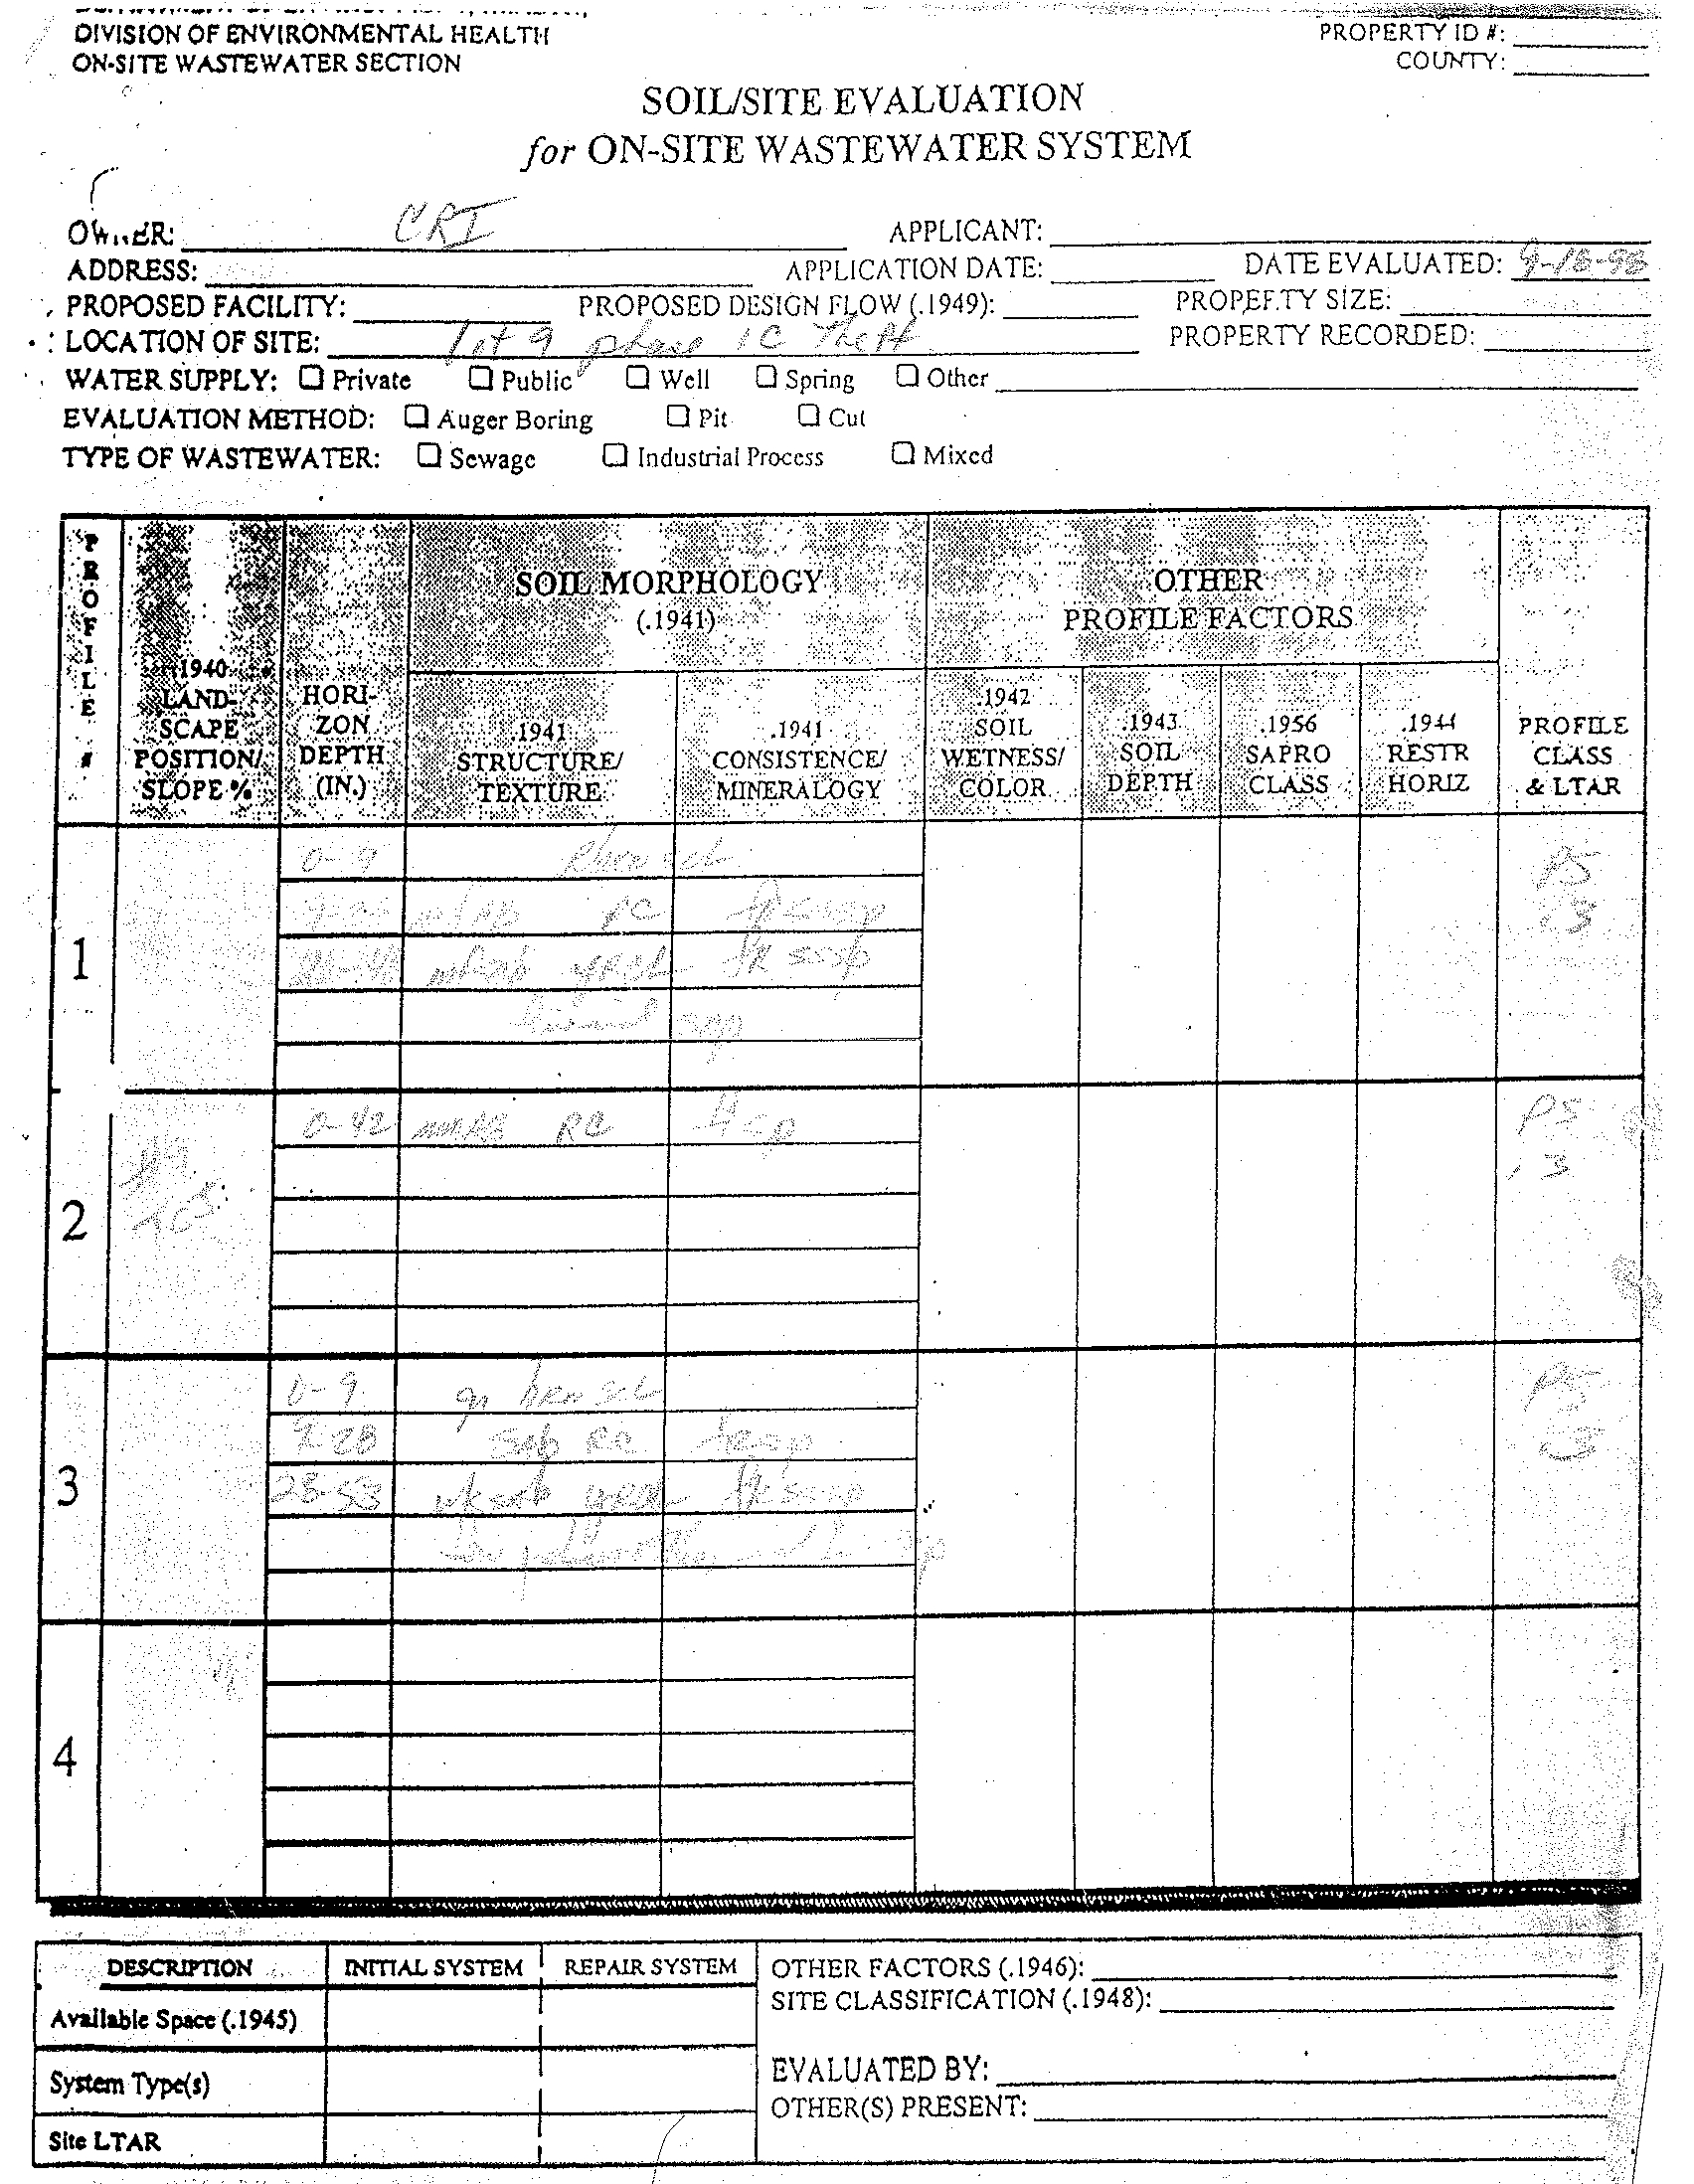 DIVISION OF ENVIRONMENTAL HEALTH
ON-SITE WASTEWATER SECTION
PROPERTY ID #:
COUNTY:
SOIL/SITE EVALUATION
for ON-SITE WASTEWATER SYSTEM
OWNER: CRI APPLICANT:
ADDRESS: APPLICATION DATE: DATE EVALUATED: 9-18-98
PROPOSED FACILITY: PROPOSED DESIGN FLOW (.1949): PROPERTY SIZE:
LOCATION OF SITE: Lot 9 phase 1C PROPERTY RECORDED:
WATER SUPPLY: Private Public Well Spring Other
EVALUATION METHOD: Auger Boring Pit Cut
TYPE OF WASTEWATER: Sewage Industrial Process Mixed
PROFILE #
.1940 LAND-SCAPE POSITION/ SLOPE %
HORI-ZON DEPTH (IN.)
SOIL MORPHOLOGY (.1941)
.1941 STRUCTURE/ TEXTURE
.1941 CONSISTENCE/ MINERALOGY
OTHER PROFILE FACTORS
.1942 SOIL WETNESS/ COLOR
.1943 SOIL DEPTH
.1956 SAPRO CLASS
.1944 RESTR HORIZ
PROFILE CLASS & LTAR
1
0-9 scl PS
.3
fr sssp
2
0-42 RC PS
.3
3
0-9 brn scl PS
9-28 sab RC .3
28-53 wk sab fr sssp
4
DESCRIPTION INITIAL SYSTEM REPAIR SYSTEM
Available Space (.1945)
System Type(s)
Site LTAR
OTHER FACTORS (.1946):
SITE CLASSIFICATION (.1948):
EVALUATED BY:
OTHER(S) PRESENT: